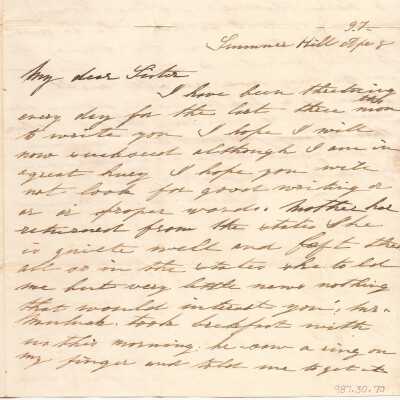 97.
Summer Hill Ap 8
My dear Sister
I have been thretning
every day for the last three mon
ths
to write you I hope I will
now succeed although I am in
agreat hury I hope you will
not look for good writing or
or proper words. Mother has
returned from the states She
is quite well and left the
all in the states she told
me but very little news nothing
that would interest you, Mr.
took breakfast with
us this morning. he saw a ring on
my finger and told me to get it
987.30.70